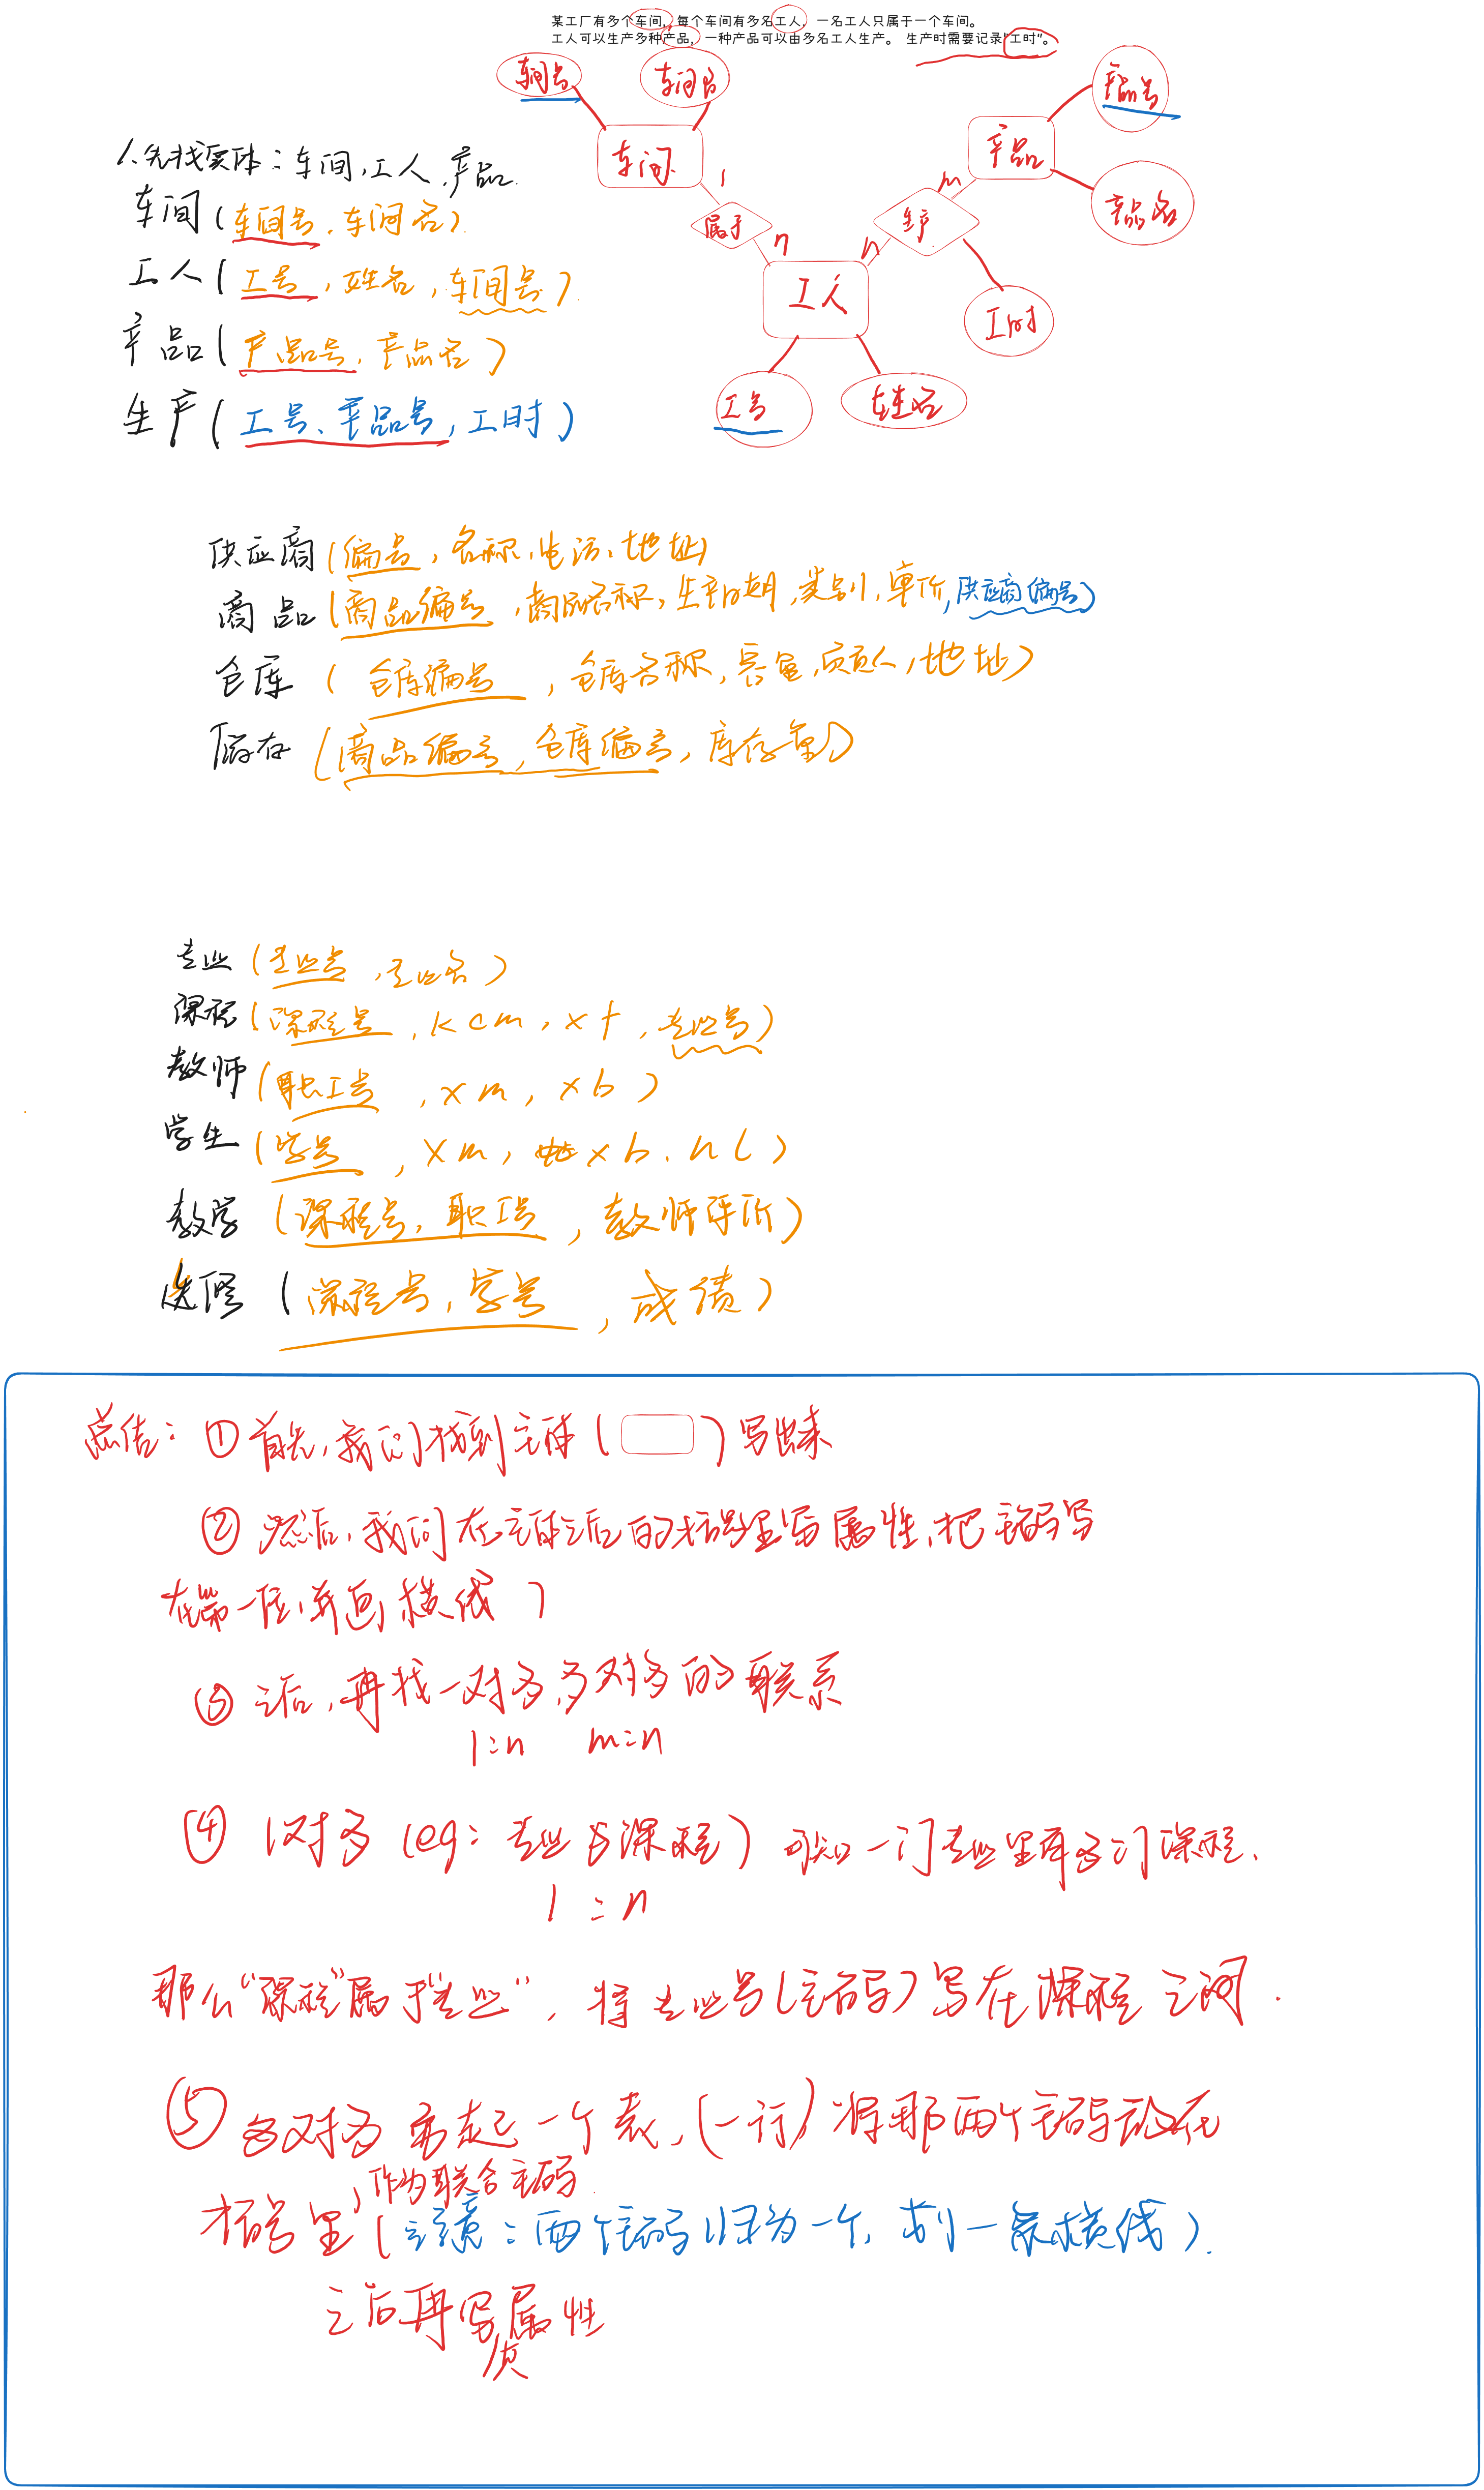 某工厂有多个车间，每个车间有多名工人，一名工人只属于一个车间。
工人可以生产多种产品，一种产品可以由多名工人生产。 生产时需要记录"工时"。
车间号
车间名
产品号
车间
产品
1
m
产品名
属于
生产
n
n
工人
工时
工号
姓名
1.先找实体：车间,工人,产品.
车间(车间号,车间名).
工人(工号,姓名,车间号).
产品(产品号,产品名)
生产(工号、产品号,工时)
供应商(编号,名称,电话,地址)
商品(商品编号,商品名称,生产日期,类别,单价,供应商编号)
仓库(仓库编号,仓库名称,容量,负责人,地址)
储存(商品编号,仓库编号,库存量)
专业(专业号,专业名)
课程(课程号,kcm,xf,专业号)
教师(职工号,xm,xb)
学生(学号,xm,xb.nl)
教学(课程号,职工号,教师评价)
选修(课程号,学号,成绩)
总结：①首先,我们找到主体()写出来
②然后,我们在主体之后的括号里写属性,把主码写
在第一位,并画横线)
③之后,再找一对多,多对多的联系
1:n m:n
④1对多(eg:专业与课程)可知一门专业里有多门课程.
1:n
那么"课程"属于"专业",将专业号(主码)写在课程之间.
⑤多对多另起一个表,(一行)将那两个主码放在
,作为联合主码.
括号里(注意：两个主码归为一个,划一条横线).
之后再写属性